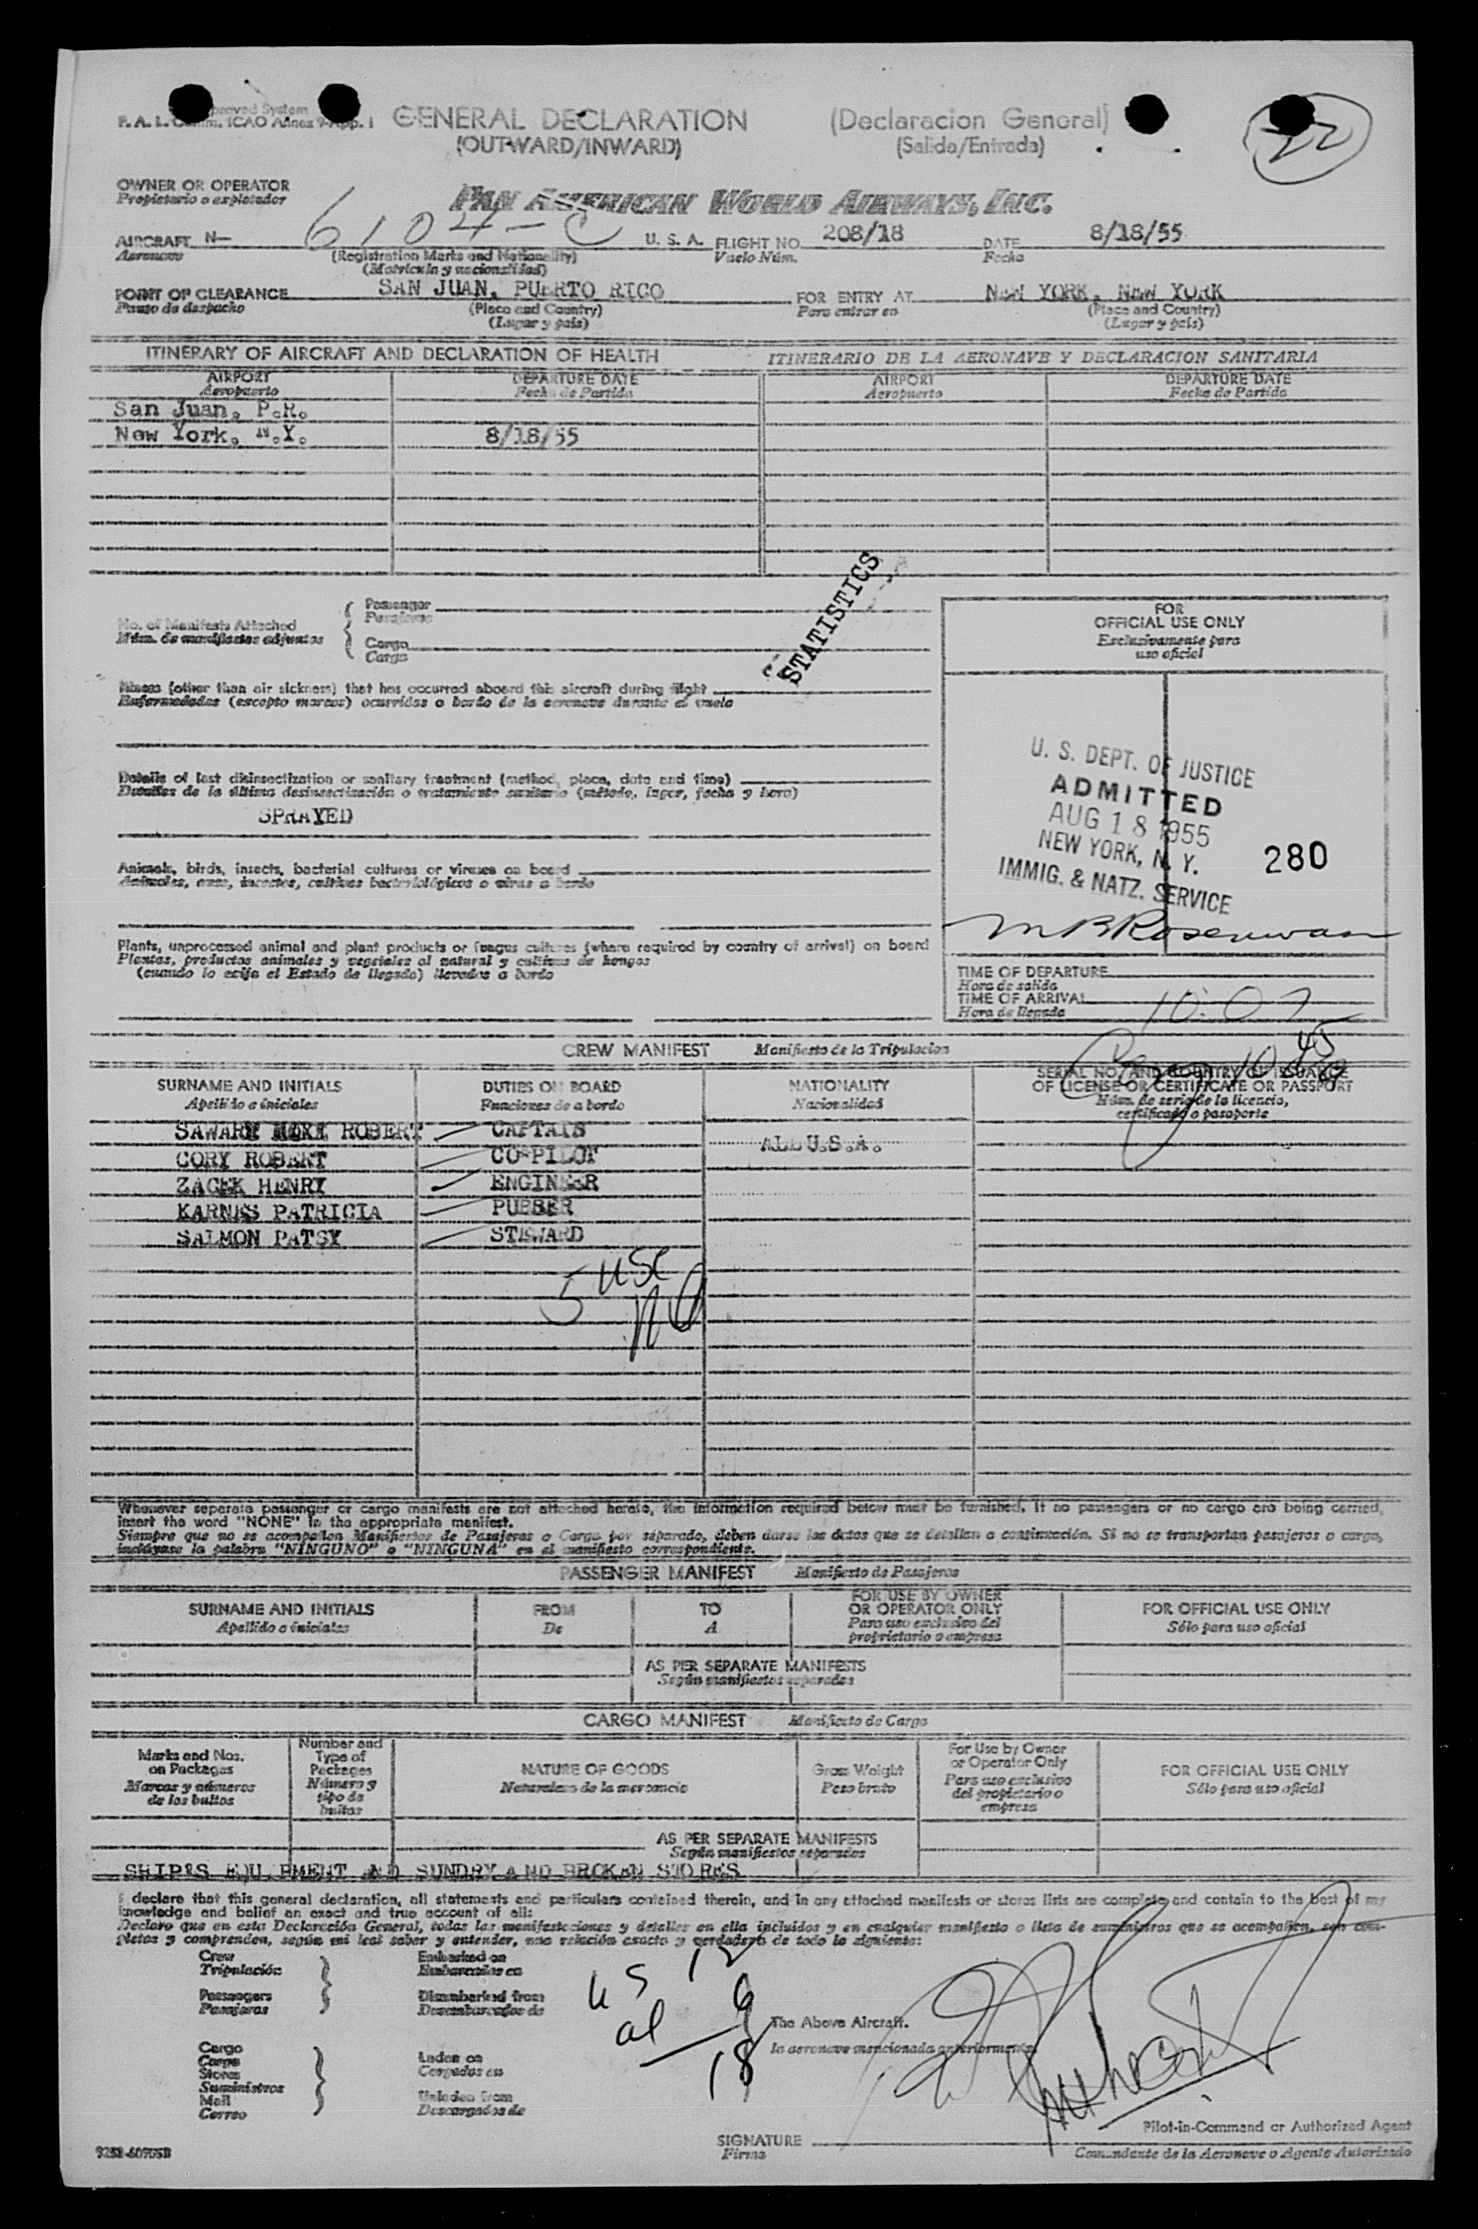 F. A. L. ICAO Annex 9-App. 1
GENERAL DECLARATION (Declaracion General)
(OUTWARD/INWARD) (Salida/Entrada)
22
OWNER OR OPERATOR
Propietario o explotador
PAN AMERICAN WORLD AIRWAYS, INC.
AIRCRAFT N- 6104-C U. S. A. FLIGHT NO. 208/18 DATE 8/18/55
Aeronave (Registration Marks and Nationality) Vuelo Núm. Fecha
(Matricula y nacionalidad)
POINT OF CLEARANCE SAN JUAN, PUERTO RICO FOR ENTRY AT NEW YORK, NEW YORK
Punto de despacho (Place and Country) Para entrar en (Place and Country)
(Lugar y país) (Lugar y país)
ITINERARY OF AIRCRAFT AND DECLARATION OF HEALTH ITINERARIO DE LA AERONAVE Y DECLARACION SANITARIA
AIRPORT DEPARTURE DATE AIRPORT DEPARTURE DATE
Aeropuerto Fecha de Partida Aeropuerto Fecha de Partida
San Juan, P.R.
New York, N.Y. 8/18/55
STATISTICS
No. of Manifests Attached
Núm. de manifiestos adjuntos
Passenger
Pasajeros
Cargo
Carga
Illness (other than air sickness) that has occurred aboard this aircraft during flight
Enfermedades (excepto mareos) ocurridas a bordo de la aeronave durante el vuelo
Details of last disinsectization or sanitary treatment (method, place, date and time)
Detalles de la última desinsectización o tratamiento sanitario (método, lugar, fecha y hora)
SPRAYED
Animals, birds, insects, bacterial cultures or viruses on board
Animales, aves, insectos, cultivos bacteriológicos o virus a bordo
Plants, unprocessed animal and plant products or fungus cultures (where required by country of arrival) on board
Plantas, productos animales y vegetales al natural y cultivos de hongos
(cuando lo exija el Estado de llegada) llevados a bordo
FOR
OFFICIAL USE ONLY
Exclusivamente para
uso oficial
U. S. DEPT. OF JUSTICE
ADMITTED
AUG 18 1955
NEW YORK, N. Y.
IMMIG. & NATZ. SERVICE
280
TIME OF DEPARTURE
Hora de salida
TIME OF ARRIVAL 10:07
Hora de llegada
CREW MANIFEST Manifiesto de la Tripulacion
SURNAME AND INITIALS DUTIES ON BOARD NATIONALITY SERIAL NO. AND COUNTRY OF ISSUANCE
OF LICENSE OR CERTIFICATE OR PASSPORT
Apellido e iniciales Funciones de a bordo Nacionalidad Núm. de serie de la licencia,
certificado o pasaporte
ROBERT CAPTAIN
CORY ROBERT CO-PILOT ALL U.S.A.
ZACEK HENRY ENGINEER
KARNES PATRICIA PURSER
SALMON PATSY STEWARD
5 USC
Whenever separate passenger or cargo manifests are not attached hereto, the information required below must be furnished. If no passengers or no cargo are being carried,
insert the word "NONE" in the appropriate manifest.
Siempre que no se acompañen Manifiestos de Pasajeros o Carga por separado, deben darse los datos que se detallan a continuación. Si no se transportan pasajeros o carga,
inclúyase la palabra "NINGUNO" o "NINGUNA" en el manifiesto correspondiente.
PASSENGER MANIFEST Manifiesto de Pasajeros
SURNAME AND INITIALS FROM TO FOR USE BY OWNER
OR OPERATOR ONLY FOR OFFICIAL USE ONLY
Apellido e iniciales De A Para uso exclusivo del
propietario o empresa Sólo para uso oficial
AS PER SEPARATE MANIFESTS
Según manifiestos separados
CARGO MANIFEST Manifiesto de Carga
Marks and Nos.
on Packages
Marcas y números
de los bultos
Number and
Type of
Packages
Número y
tipo de
bultos
NATURE OF GOODS
Naturaleza de la mercancía
Gross Weight
Peso bruto
For Use by Owner
or Operator Only
Para uso exclusivo
del propietario o
empresa
FOR OFFICIAL USE ONLY
Sólo para uso oficial
AS PER SEPARATE MANIFESTS
Según manifiestos separados
SHIP'S EQUIPMENT AND SUNDRY AND BROKEN STORES
I declare that this general declaration, all statements and particulars contained therein, and in any attached manifests or stores lists are complete and contain to the best of my
knowledge and belief an exact and true account of all:
Declaro que en esta Declaración General, todas las manifestaciones y detalles en ella incluidos y en cualquier manifiesto o lista de suministros que se acompañen, son com-
pletos y comprenden, según mi leal saber y entender, una relación exacta y verdadera de todo lo siguiente:
Crew
Tripulación
Passengers
Pasajeros
Embarked on
Embarcados en
Disembarked from
Desembarcados de
Cargo
Carga
Stores
Suministros
Mail
Correo
Laden on
Cargados en
Unladen from
Descargados de
US 12
al 6
18
The Above Aircraft.
la aeronave mencionada anteriormente.
SIGNATURE
Firma
Pilot-in-Command or Authorized Agent
Comandante de la Aeronave o Agente Autorizado